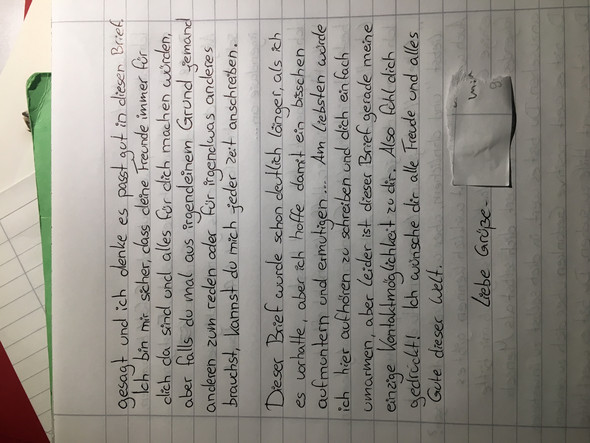 gesagt und ich denke es passt gut in diesen Brief.
Ich bin mir sicher, dass deine Freunde immer für
dich da sind und alles für dich machen würden,
aber falls du mal aus irgendeinem Grund jemand
anderen zum reden oder für irgendwas anderes
brauchst, kannst du mich jeder zeit anschreiben.
Dieser Brief wurde schon deutlich länger, als ich
es vorhatte, aber ich hoffe damit ein bisschen
aufmuntern und ermutigen... Am liebsten würde
ich hier aufhören zu schreiben und dich einfach
umarmen, aber leider ist dieser Brief gerade meine
einzige Kontaktmöglichkeit zu dir. Also fühl dich
gedrückt! Ich wünsche dir alle Freude und alles
Gute dieser Welt.
Liebe Grüße-